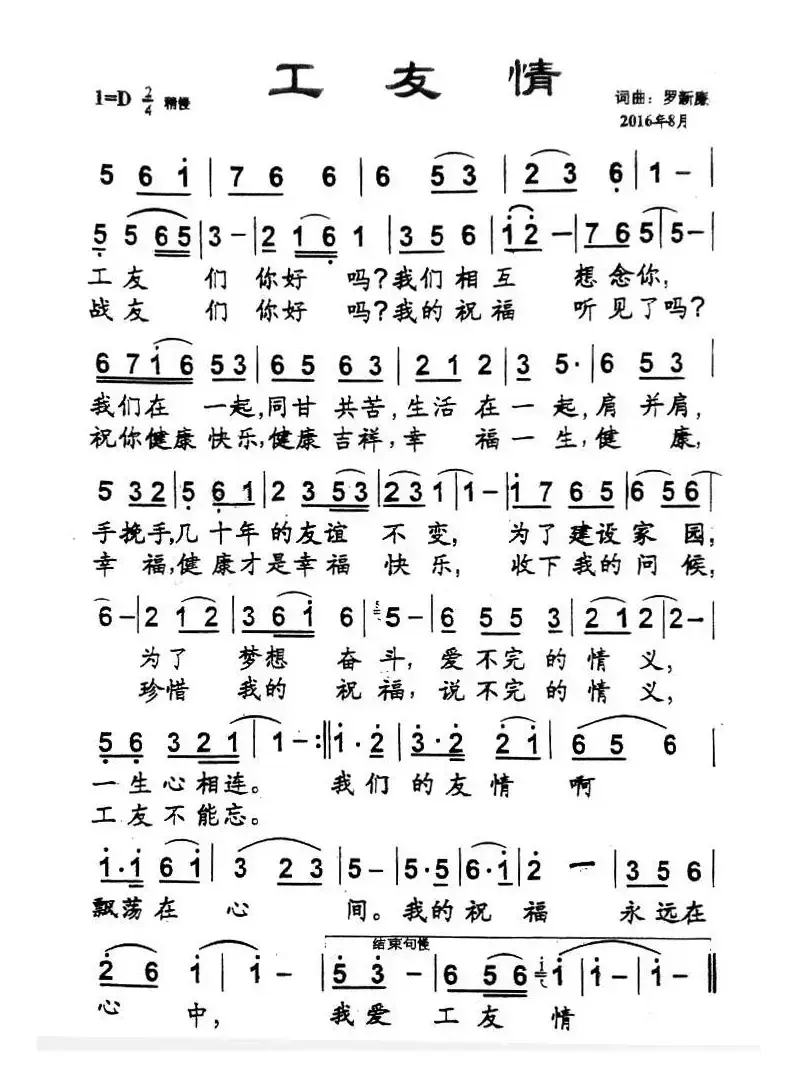 工友情
1=D 2/4 稍慢
词曲：罗新廉
2016年8月
5 6 i | 7 6 6 | 6 5 3 | 2 3 6 | 1 - |
5 5 6 5 | 3 - | 2 1 6 1 | 3 5 6 | i 2 - | 7 6 5 | 5 - |
工友 们你好 吗?我们相互 想念你,
战友 们你好 吗?我的祝福 听见了吗?
6 7 i 6 5 3 | 6 5 6 3 | 2 1 2 | 3 5· | 6 5 3 |
我们在 一起,同甘 共苦,生活 在一起,肩并肩,
祝你健康快乐,健康吉祥,幸 福一生,健 康,
5 3 2 | 5 6 1 | 2 3 5 3 | 2 3 1 | 1 - | i 7 6 5 | 6 5 6 |
手挽手,几十年的友谊 不变, 为了建设家园,
幸 福,健康才是幸福 快乐, 收下我的问候,
6 - | 2 1 2 | 3 6 i 6 | 5 - | 6 5 5 3 | 2 1 2 | 2 - |
为了 梦想 奋斗, 爱不完的情义,
珍惜 我的 祝福, 说不完的情义,
5 6 3 2 1 | 1 - :‖ i· 2 | 3· 2 2 i | 6 5 6 |
一生心相连。 我们的友情 啊
工友不能忘。
i· i 6 i | 3 2 3 | 5 - | 5· 5 6· i | 2 - | 3 5 6 |
飘荡在 心 间。我的祝 福 永远在
结束句慢
2 6 i | i - | 5 3 - | 6 5 6 i | i - | i - ‖
心 中, 我爱 工友 情